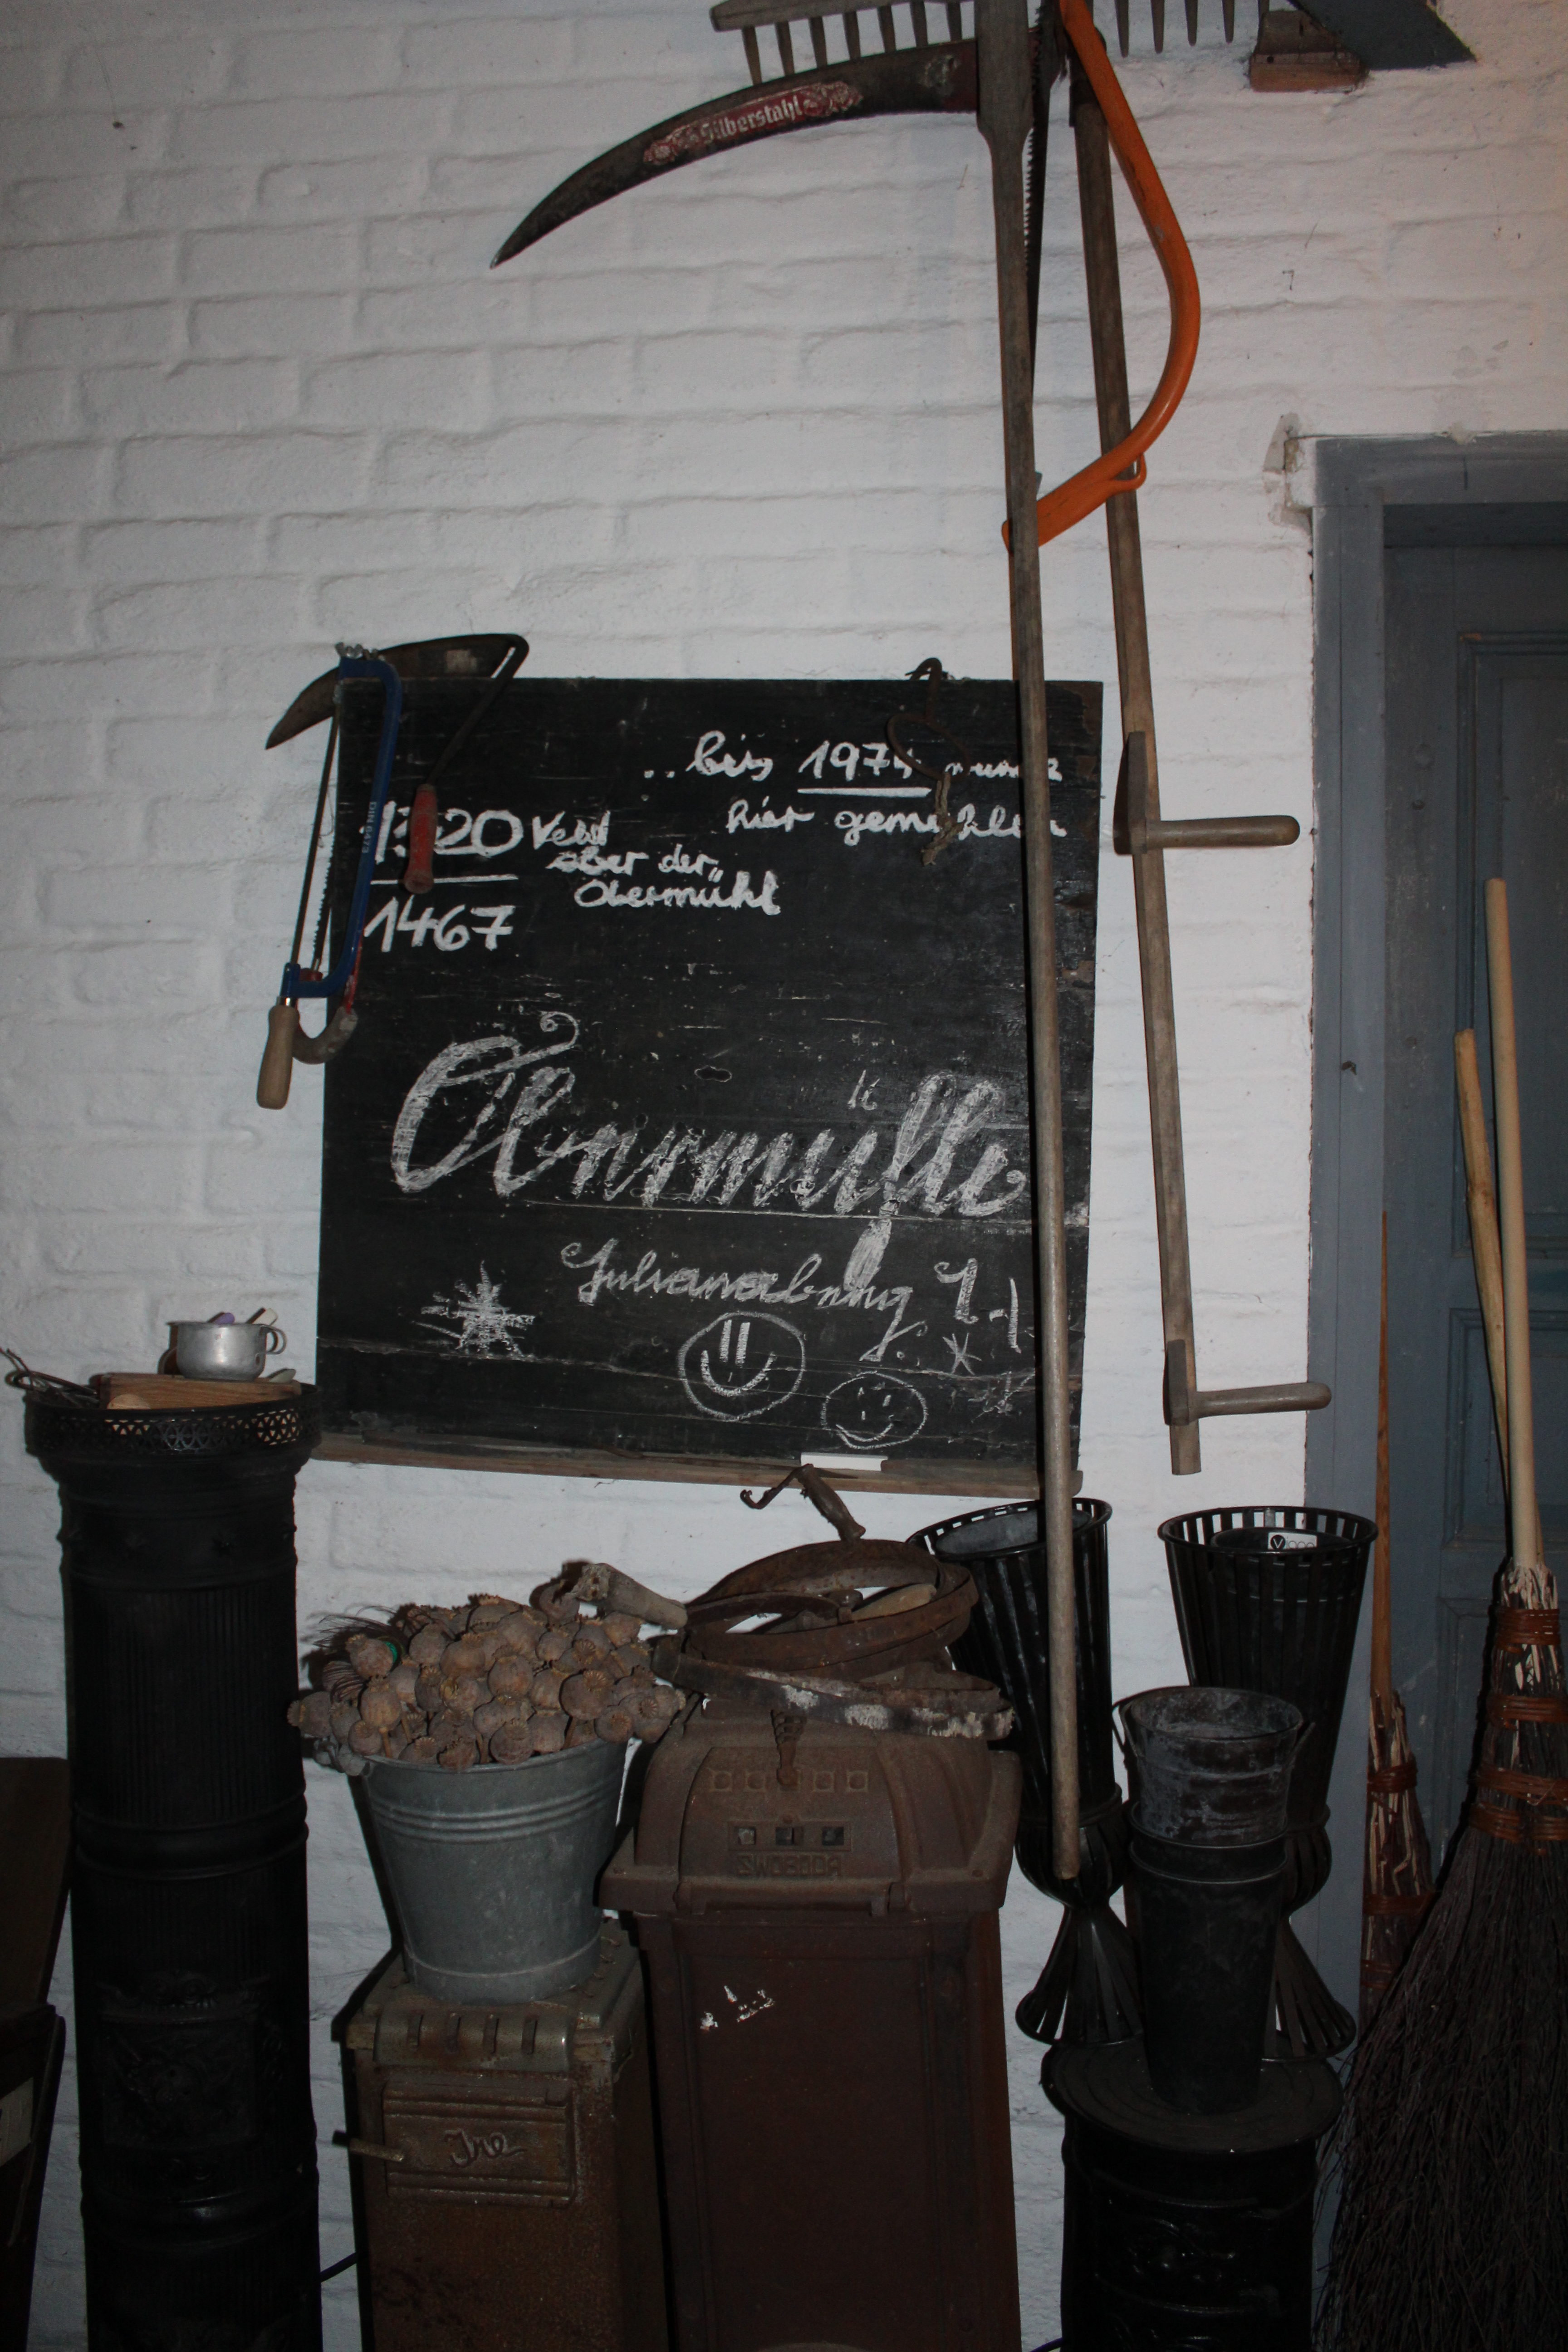 Silberstahl
..bis 1974 wurde
hier gemahlen
1320 Veld
ober der
Obermühl
1467
Obermühle
Julianaberg
DIN 6473
SWOBODA
Ire